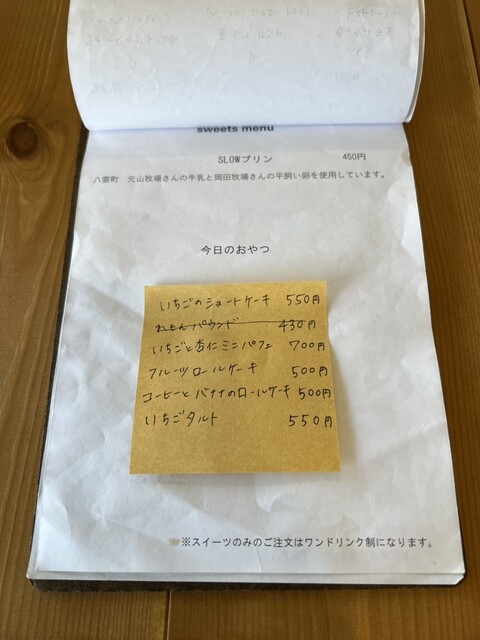 sweets menu
SLOWプリン 450円
八雲町 元山牧場さんの牛乳と岡田牧場さんの平飼い卵を使用しています。
今日のおやつ
いちごのショートケーキ 550円
れもんパウンド 430円
いちごと杏仁ミニパフェ 700円
フルーツロールケーキ 500円
コーヒーとバナナのロールケーキ 500円
いちごタルト 550円
※スイーツのみのご注文はワンドリンク制になります。